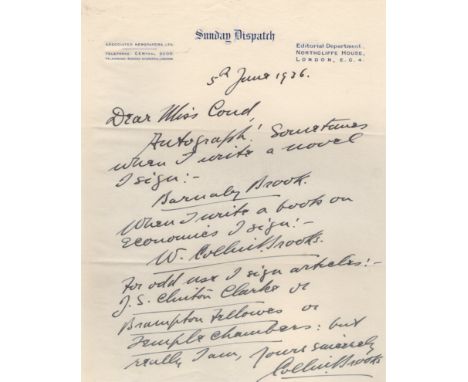 Sunday Dispatch
ASSOCIATED NEWSPAPERS LTD.
TELEPHONE: CENTRAL 6000.
Editorial Department,
NORTHCLIFFE HOUSE,
LONDON, E.C.4.
5th June 1936.
Dear Miss Cond,
Autograph! Sometimes
when I write a novel
I sign:-
Barnaby Brook.
When I write a book on
economics I sign:-
W. Collin Brooks.
For odd use I sign articles:-
J. S. Clinton Clarke or
Brampton Fellowes or
Temple Chambers: but
really I am, yours sincerely
Collin Brooks